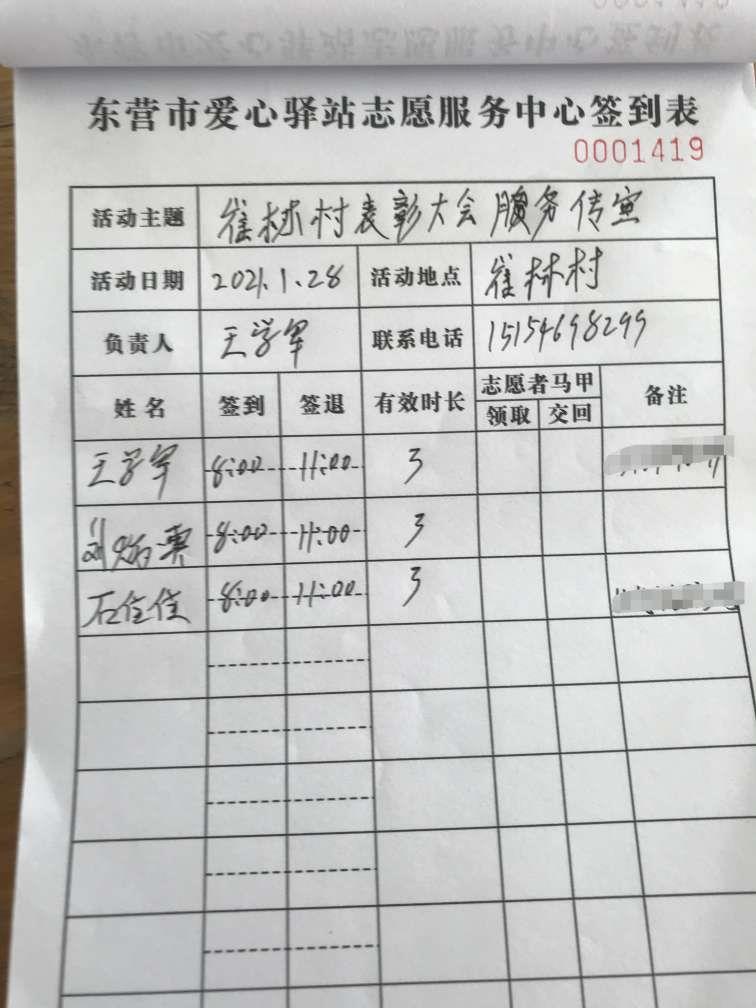 东营市爱心驿站志愿服务中心签到表
0001419
活动主题 崔林村表彰大会服务传宣
活动日期 2021.1.28 活动地点 崔林村
负责人 王学军 联系电话 15154698299
姓名 签到 签退 有效时长 志愿者马甲 备注
领取 交回
王学军 8:00 11:00 3
刘 8:00 11:00 3
石佳佳 8:00 11:00 3